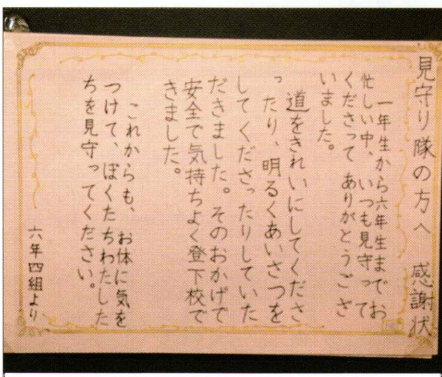 見守り隊の方へ　感謝状
一年生から六年生までお
忙しい中、いつも見守って
くださってありがとうござ
いました。
道をきれいにしてくださ
ったり、明るくあいさつを
してくださったりしていた
だきました。そのおかげで
安全で気持ちよく登下校で
きました。
これからも、お体に気を
つけて、ぼくたちわたした
ちを見守ってください。
六年四組より